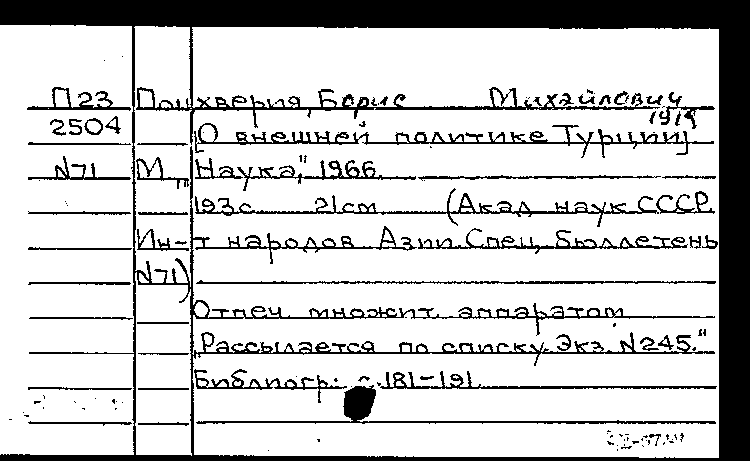 П23 Поцхверия, Борис Михайлович
1919
2504 [О внешней политике Турции]
N71 М., „Наука", 1966.
193с. 21см. (Акад. наук СССР.
Ин-т народов Азии. Спец. Бюллетень
N71)
Отпеч. множит. аппаратом.
„Рассылается по списку. Экз. N245."
Библиогр.: с. 181-191.